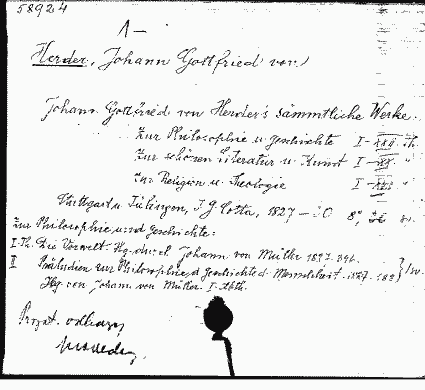 58924
1-
Herder, Johann Gottfried von
Johann Gottfried von Herder's sämmtliche Werke.
Zur Philosophie u. Geschichte I-
Zur schönen Literatur u. Kunst I-
Zur Religion u. Theologie I-
Stuttgart u. Tübingen, J. G. Cotta, 1827-30 8°
Zur Philosophie und Geschichte:
I. Th. Die Vorwelt. Hg. durch Johann von Müller 1827.
II Präludien zur Philosophie d. Geschichte d. Menschheit. 1827.
Hg. von Johann von Müller. I. Abth.